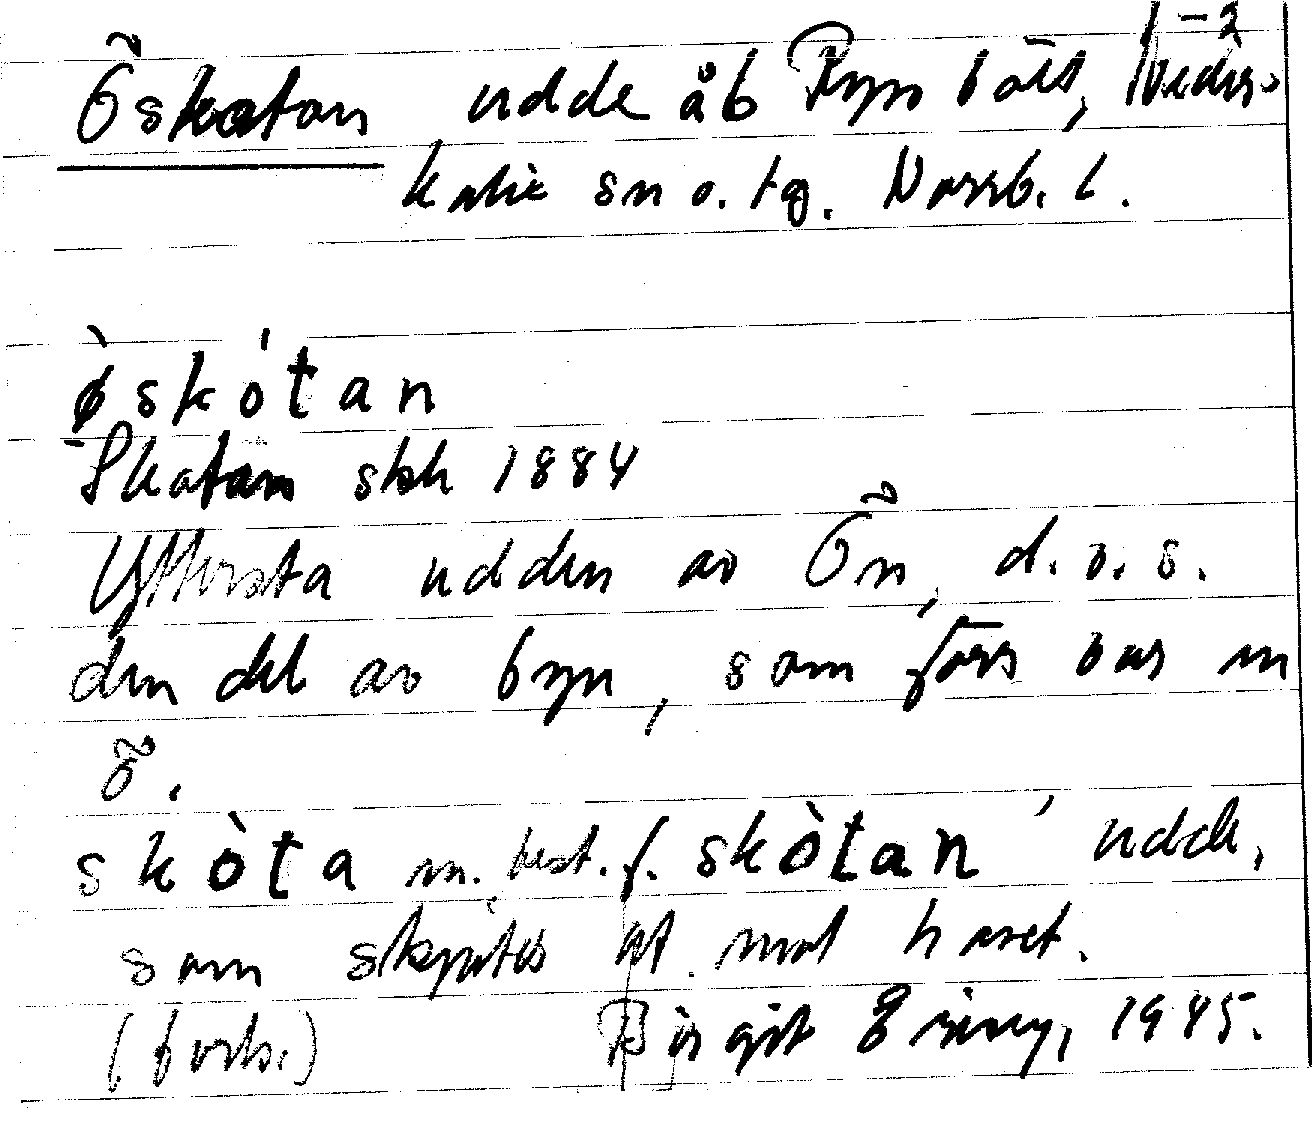 1-2
Öskatan udde åb Ryn bäls, Neder-
kalix sn o. tg. Norrb. l.
ø̀skótan
Skatan skh 1884
Yttersta udden av Ön, d.v.s.
den del av byn, som förr var en
ö.
skòta m. best. f. skòtan ' udde,
som skjutes ut mot havet.
(forts.) Birgit Eriny, 1945.